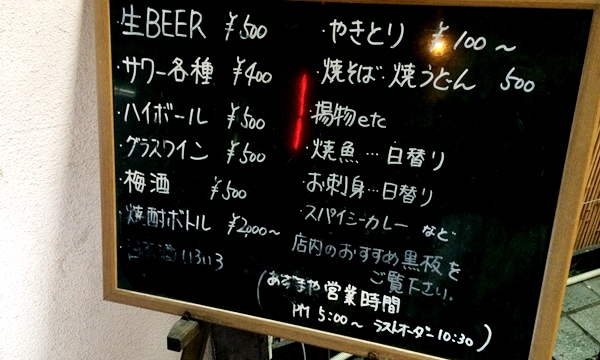 生BEER ¥500
・サワー各種 ¥400
・ハイボール ¥500
・グラスワイン ¥500
・梅酒 ¥500
・焼酎ボトル ¥2,000～
・日本酒いろいろ
・やきとり ¥100～
・焼そば・焼うどん 500
・揚物etc
・焼魚…日替り
・お刺身…日替り
・スパイシーカレー など
店内のおすすめ黒板を
ご覧下さい。
(あずまや営業時間
PM 5:00～ ラストオーダー10:30)